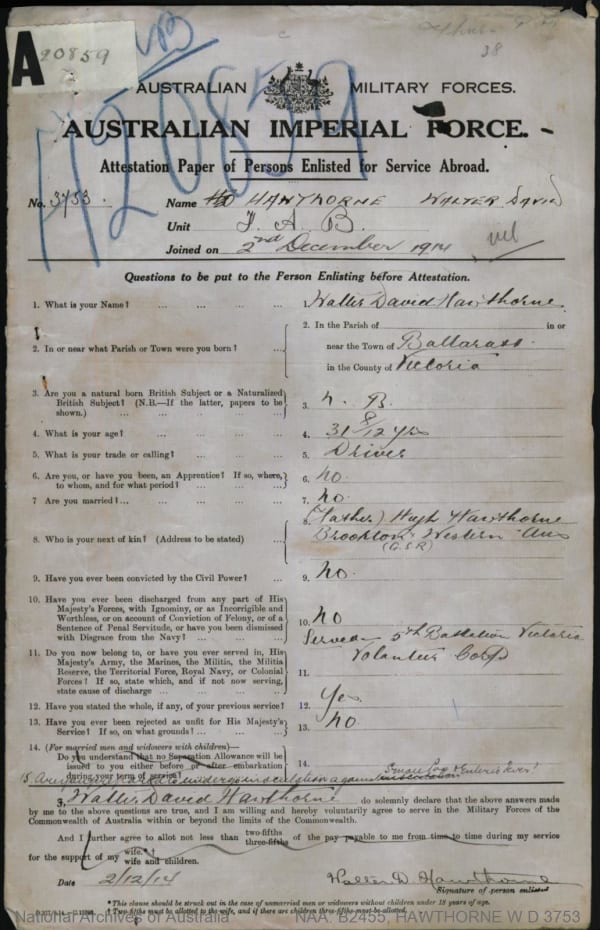 A 20859
38
120859
AUSTRALIAN MILITARY FORCES.
AUSTRALIAN IMPERIAL FORCE.
Attestation Paper of Persons Enlisted for Service Abroad.
No. 3753. Name HAWTHORNE WALTER DAVID
Unit F. A. B.
Joined on 2nd December 1914
Questions to be put to the Person Enlisting before Attestation.
1. What is your Name? ... ... ... ... 1. Walter David Hawthorne
2. In or near what Parish or Town were you born? ... 2. In the Parish of in or
near the Town of Ballarat
in the County of Victoria
3. Are you a natural born British Subject or a Naturalized
British Subject? (N.B.—If the latter, papers to be
shown.) ... ... ... ... 3. N. B.
4. What is your age? ... ... ... ... 4. 31 8/12 yrs
5. What is your trade or calling? ... ... ... 5. Driver
6. Are you, or have you been, an Apprentice? If so, where,
to whom, and for what period? ... ... ... 6. no.
7 Are you married?... ... ... ... ... 7. no.
8. Who is your next of kin? (Address to be stated) ... 8. (Father) Hugh Hawthorne
Brookton Western Aus
(G.S.R)
9. Have you ever been convicted by the Civil Power? ... 9. No.
10. Have you ever been discharged from any part of His
Majesty's Forces, with Ignominy, or as Incorrigible and
Worthless, or on account of Conviction of Felony, or of a
Sentence of Penal Servitude, or have you been dismissed
with Disgrace from the Navy? ... ... ... 10. No
11. Do you now belong to, or have you ever served in, His
Majesty's Army, the Marines, the Militia, the Militia
Reserve, the Territorial Force, Royal Navy, or Colonial
Forces? If so, state which, and if not now serving,
state cause of discharge ... ... ... ... 11. Served 5th Battalion Victoria
Volunteer Corps
12. Have you stated the whole, if any, of your previous service? 12. Yes
13. Have you ever been rejected as unfit for His Majesty's
Service? If so, on what grounds? ... ... ... 13. no.
14. (For married men and widowers with children)—
Do you understand that no Separation Allowance will be
issued to you either before or after embarkation
during your term of service? 14.
15. Are you prepared to undergo inoculation against Small Pox & Enteric Fever?
I, Walter David Hawthorne do solemnly declare that the above answers made
by me to the above questions are true, and I am willing and hereby voluntarily agree to serve in the Military Forces of the
Commonwealth of Australia within or beyond the limits of the Commonwealth.
And I further agree to allot not less than two-fifths
three-fifths of the pay payable to me from time to time during my service
for the support of my wife.*†
wife and children.
Date 2/12/14 Walter D. Hawthorne
Signature of person enlisted
*This clause should be struck out in the case of unmarried men or widowers without children under 18 years of age.
† Two-fifths must be allotted to the wife, and if there are children three-fifths must be allotted.
National Archives of Australia NAA: B2455, HAWTHORNE W D 3753